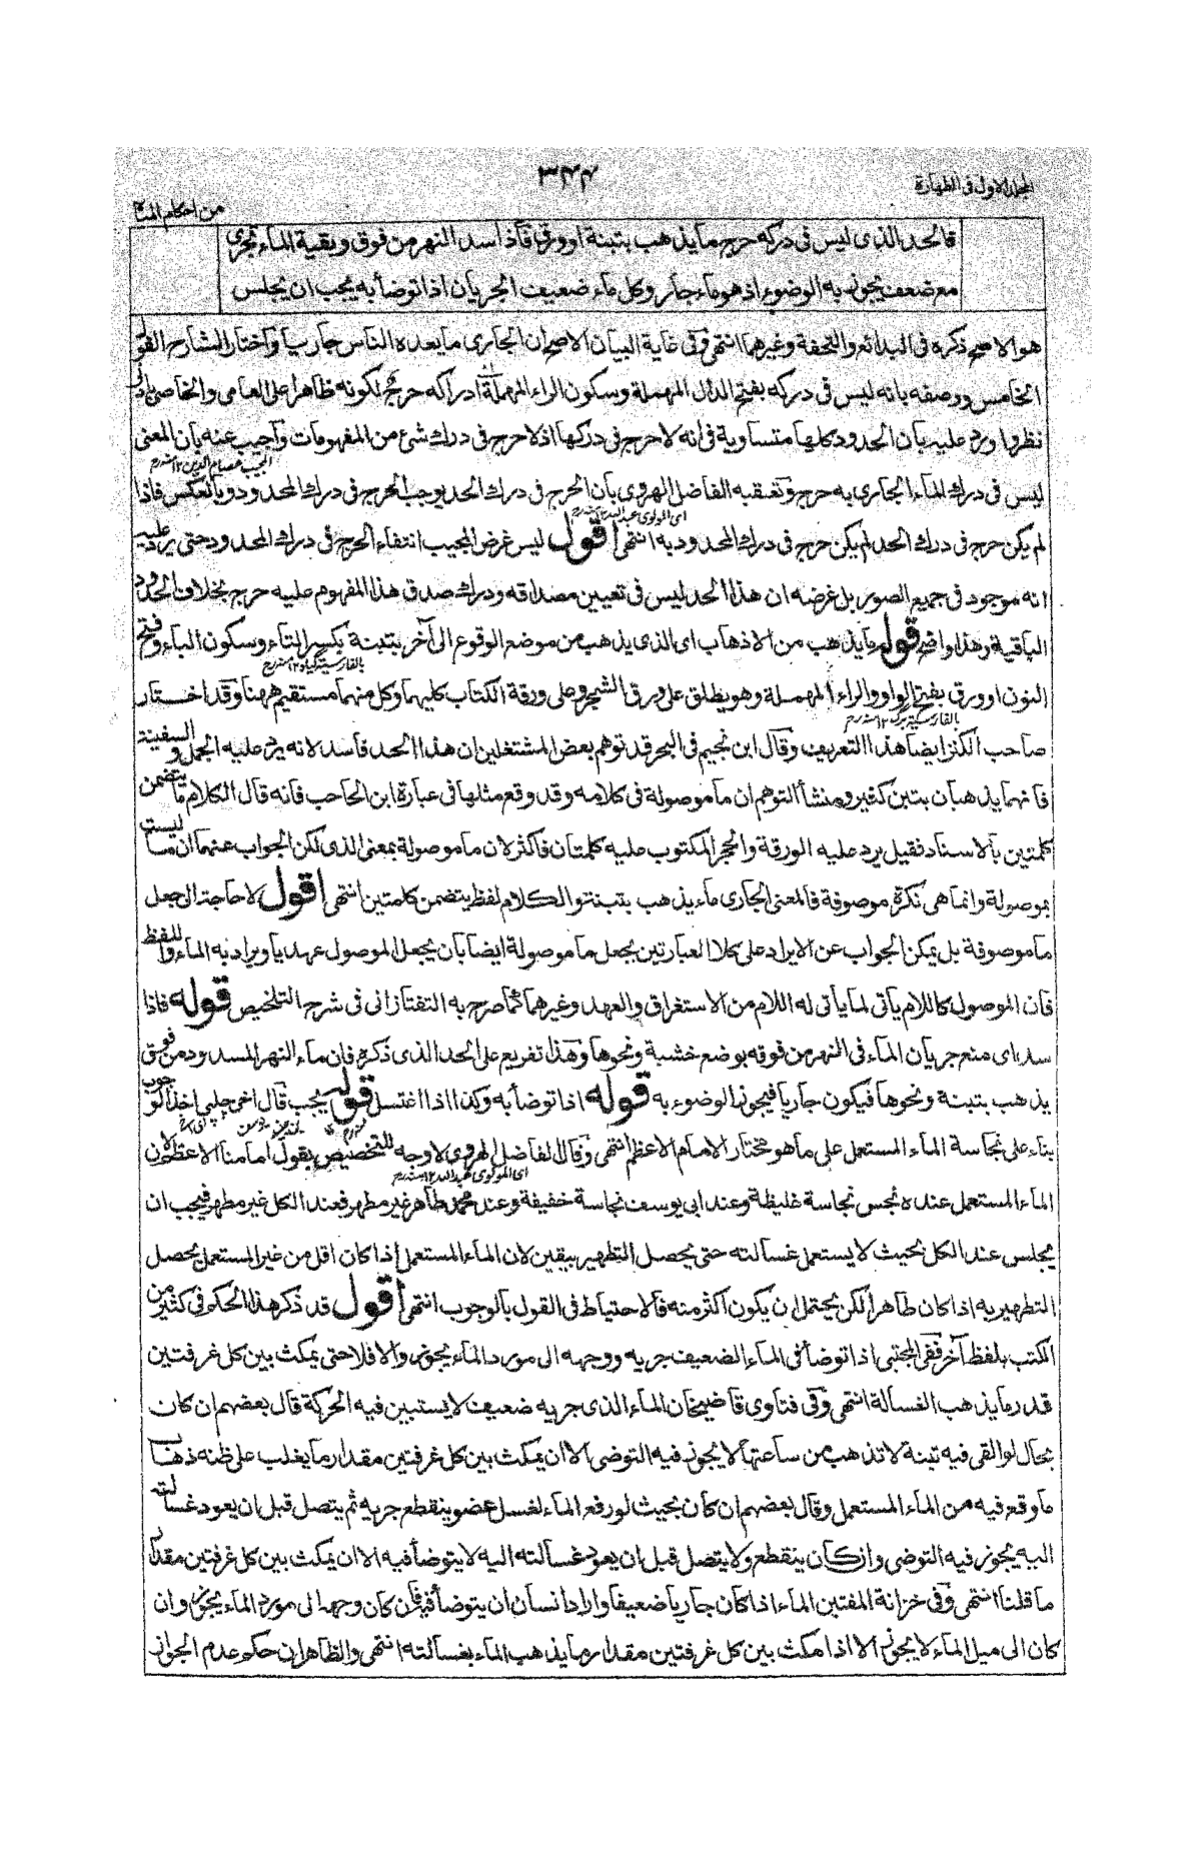 ٣٤٤
المجلد الاول فى الطهارة
من احكام المياه
فالحد الذى ليس فى دركه حرج ما يذهب بتبنة او ورق فاذا سد النهر من فوق وبقية الماء تجرى
مع ضعف يجوز به الوضوء اذ هو ماء جار وكل ماء ضعيف الجريان اذا توضأ به يجب ان يجلس
هو الاصح ذكره فى البدائع والتحفة وغيرهما انتهى وفى غاية البيان الاصح ان الجارى ما يعده الناس جاريا واختار الشارح القول
الخامس ووصفه بانه ليس فى دركه بفتح الدال المهملة وسكون الراء المهملة اى ادراكه حرج لكونه ظاهرا على العامى والخاصى بادنى
نظر واورد عليه بان الحدود كلها متساوية فى انه لا حرج فى دركها اذ لا حرج فى درك شئ من المفهومات واجيب عنه بان المعنى
المجيب عصام الدين ١٢ منه رح
ليس فى درك الماء الجارى به حرج وتعقبه الفاضل الهروى بان الحرج فى درك الحد يوجب الحرج فى درك المحدود وبالعكس فاذا
اى المولوى عبد الله ١٢ منه رح
لم يكن حرج فى درك الحد لم يكن حرج فى درك المحدود به انتهى اقول ليس غرض المجيب انتفاء الحرج فى درك المحدود حتى يرد عليه
انه موجود فى جميع الصور بل غرضه ان هذا الحد ليس فى تعيين مصداقه ودرك صدق هذا المفهوم عليه حرج بخلاف الحدود
الباقية وهذا واضح قوله ما يذهب من الاذهاب اى الذى يذهب من موضع الوقوع الى آخر بتبنة بكسر التاء وسكون الباء وفتح
بالفارسية گياه ١٢ منه رح
النون او ورق بفتح الواو والراء المهملة وهو يطلق على ورق الشجر وعلى ورقة الكتاب كليهما وكل منهما مستقيم ههنا وقد اختار
بالفارسية برگ ١٢ منه رح
صاحب الكنز ايضا هذا التعريف وقال ابن نجيم فى البحر قد توهم بعض المشتغلين ان هذا الحد فاسد لانه يرد عليه الجمل والسفينة
فانهما يذهبان بتبن كثير ومنشأ التوهم ان ما موصولة فى كلامه وقد وقع مثلها فى عبارة ابن الحاجب فانه قال الكلام ما يتضمن
كلمتين بالاسناد فقيل يرد عليه الورقة والحجر المكتوب عليه كلمتان فاكثر لان ما موصولة بمعنى الذى لكن الجواب عنهما ان ما ليست
بموصولة وانما هى نكرة موصوفة فالمعنى الجارى ماء يذهب بتبنة والكلام لفظ يتضمن كلمتين انتهى اقول لا حاجة الى جعل
ما موصوفة بل يمكن الجواب عن الايراد على كلا العبارتين بجعل ما موصولة ايضا بان يجعل الموصول عهديا ويراد به الماء واللفظ
فان الموصول كاللام يأتى لما يأتى له اللام من الاستغراق والعهد وغيرهما كما صرح به التفتازانى فى شرح التلخيص قوله فاذا
سد اى منع جريان الماء فى النهر من فوقه بوضع خشبة ونحوها وهذا تفريع على الحد الذى ذكره فان ماء النهر المسدود من فوق
يذهب بتبنة ونحوها فيكون جاريا فيجوز الوضوء به قوله اذا توضأ به وكذا اذا اغتسل قوله يجب قال اخى چلپى اخذ الوجوب
بناء على نجاسة الماء المستعمل على ما هو مختار الامام الاعظم انتهى وقال الفاضل الهروى لا وجه للتخصيص بقول امامنا الاعظم لان
اى المولوى عبد الله ١٢ منه رح
الماء المستعمل عنده نجس نجاسة غليظة وعند ابى يوسف نجاسة خفيفة وعند محمد طاهر غير مطهر فعند الكل غير مطهر فيجب ان
يجلس عند الكل بحيث لا يستعمل غسالته حتى يحصل التطهير بيقين لان الماء المستعمل اذا كان اقل من غير المستعمل يحصل
التطهير به اذا كان طاهرا لكن يحتمل ان يكون اكثر منه فالاحتياط فى القول بالوجوب انتهى اقول قد ذكر هذا الحكم فى كثير من
الكتب بلفظ آخر ففى المجتبى اذا توضأ فى الماء الضعيف جريه ووجهه الى مورد الماء يجوز والا فلا حتى يمكث بين كل غرفتين
قدر ما يذهب الغسالة انتهى وفى فتاوى قاضيخان الماء الذى جريه ضعيف لا يستبين فيه الحركة قال بعضهم ان كان
بحال لو القى فيه تبنة لا تذهب من ساعتها لا يجوز فيه التوضى الا ان يمكث بين كل غرفتين مقدار ما يغلب على ظنه ذهاب
ما وقع فيه من الماء المستعمل وقال بعضهم ان كان بحيث لو رفع الماء لغسل عضو ينقطع جريه ثم يتصل قبل ان يعود غسالته
اليه يجوز فيه التوضى وان كان ينقطع ولا يتصل قبل ان يعود غسالته اليه لا يتوضأ فيه الا ان يمكث بين كل غرفتين مقدار
ما قلنا انتهى وفى خزانة المفتين الماء اذا كان جاريا ضعيفا واراد انسان ان يتوضأ فيه فان كان وجهه الى مورد الماء يجوز وان
كان الى ميل الماء لا يجوز الا اذا مكث بين كل غرفتين مقدار ما يذهب الماء بغسالته انتهى والظاهر ان حكم عدم الجواز